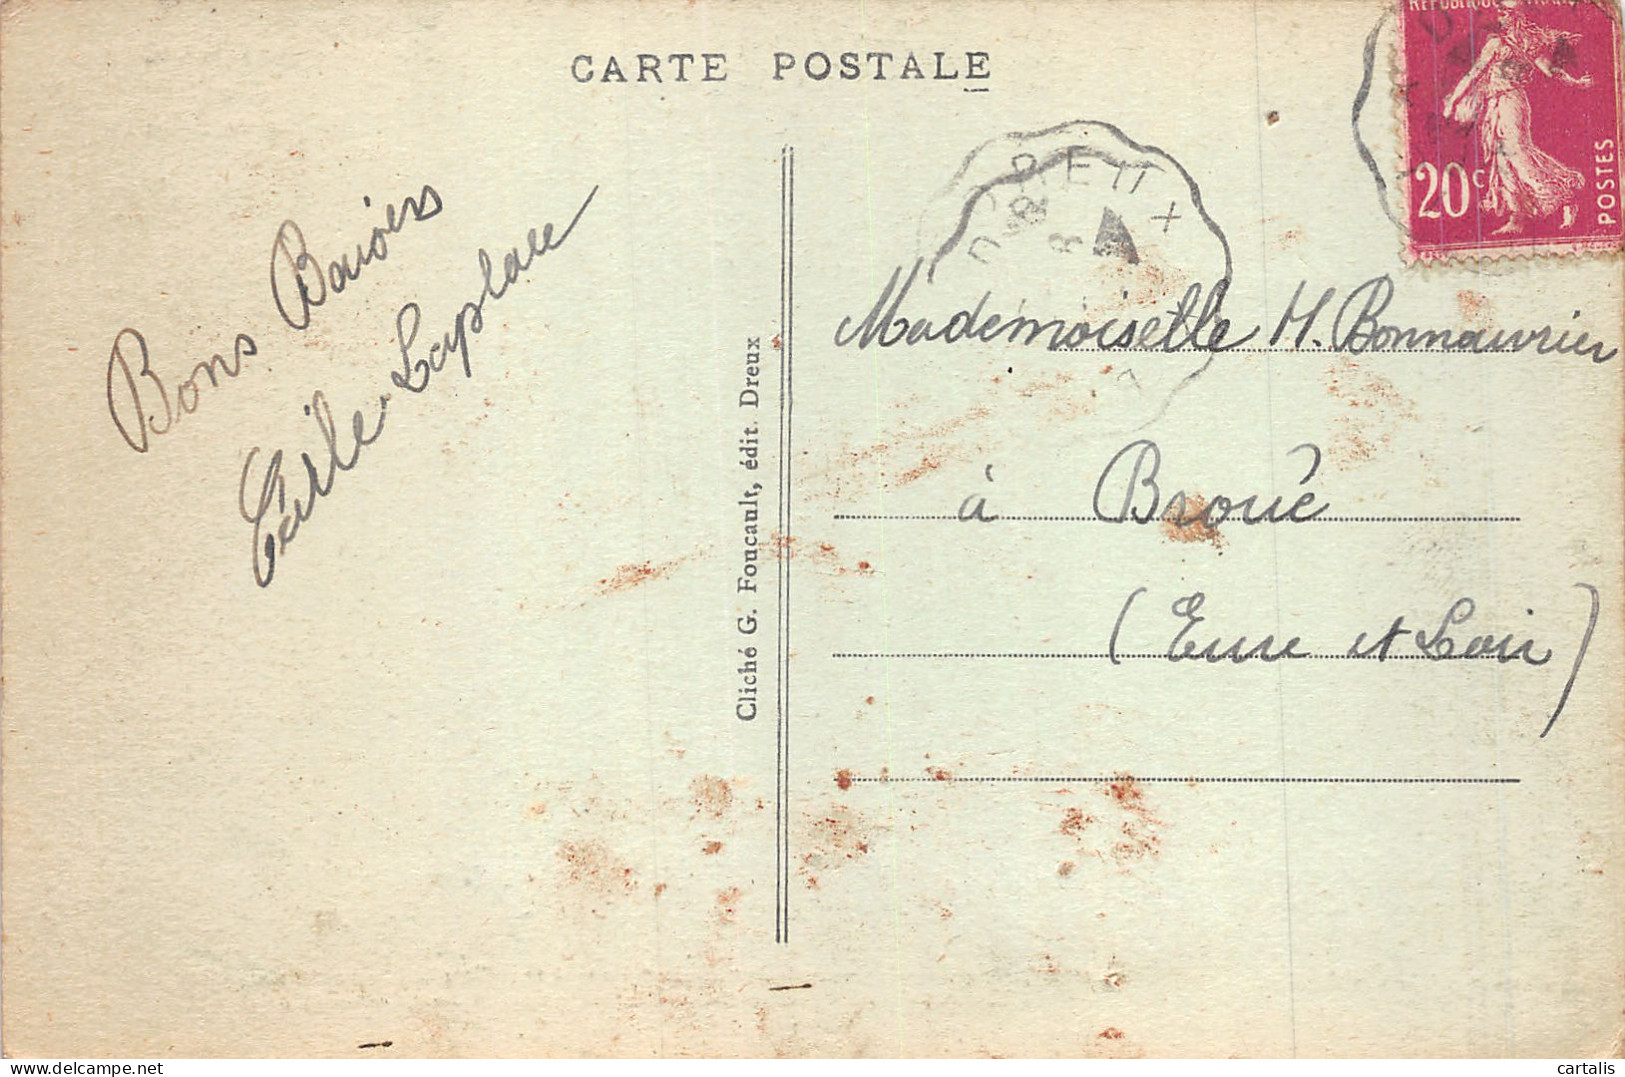 CARTE POSTALE
RÉPUBLIQUE
20c
POSTES
DREUX
Bons Baisers
Cécile Laplace
Cliché G. Foucault, édit. Dreux
Mademoiselle H. Bonnauvrier
à Broué
(Eure et Loir)
cartalis